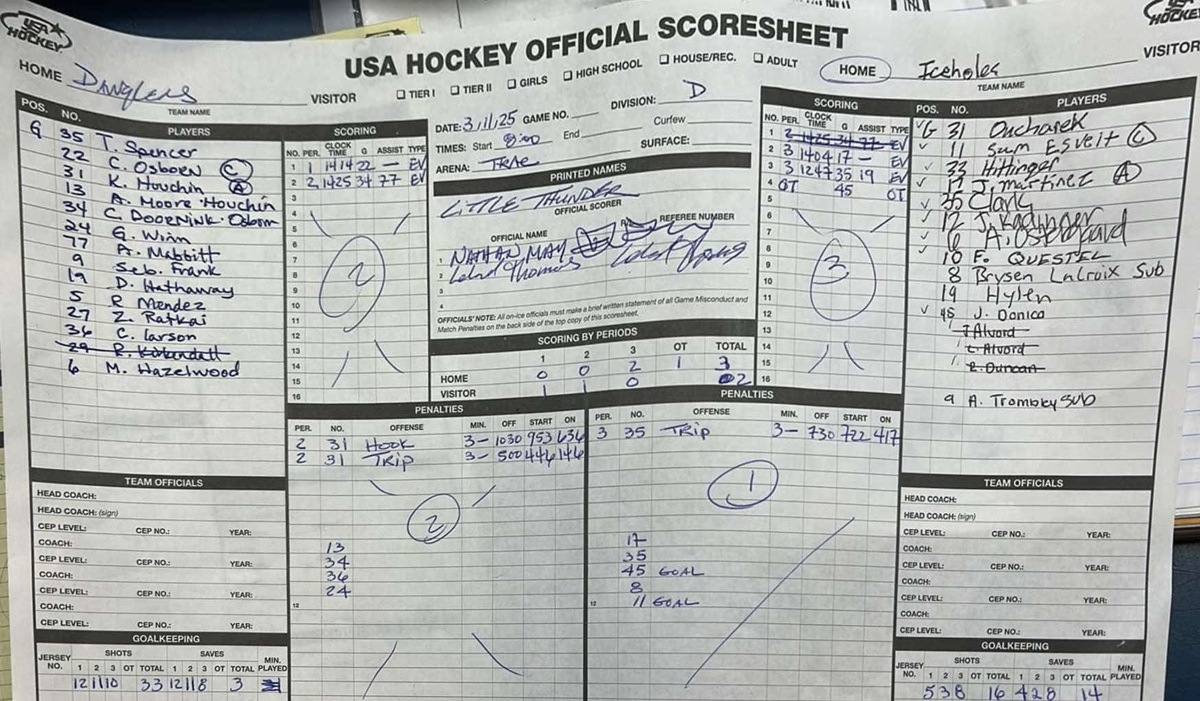 USA HOCKEY
USA HOCKEY OFFICIAL SCORESHEET
HOCKEY
HOME Danglers VISITOR
TEAM NAME
☐ TIER I ☐ TIER II ☐ GIRLS ☐ HIGH SCHOOL ☐ HOUSE/REC. ☐ ADULT
HOME Iceholes VISITOR
TEAM NAME
POS. NO. PLAYERS
G 35 T. Spencer
22 C. Osborn C
31 K. Houchin A
13 A. Moore-Houchin
34 C. Doornink-Osborn
24 G. Winn
77 A. Mabbitt
9 Seb. Frank
19 D. Hathaway
5 R Mendez
27 Z. Ratkai
36 C. Larson
29
6 M. Hazelwood
SCORING
NO. PER. CLOCK TIME G ASSIST TYPE
1 1 1414 22 — EV
2 2 1425 34 77 EV
3
4
5
6
7
8
9
10
11
12
13
14
15
16
2
DATE: 3/11/25 GAME NO. DIVISION: D
TIMES: Start 8:00 End Curfew
ARENA: TRAC SURFACE:
PRINTED NAMES
LITTLE THUNDER
OFFICIAL SCORER
OFFICIAL NAME REFEREE NUMBER
1 NATHAN MAY
2 Leland Thomas
3
4
OFFICIALS' NOTE: All on-ice officials must make a brief written statement of all Game Misconduct and
Match Penalties on the back side of the top copy of this scoresheet.
SCORING BY PERIODS
1 2 3 OT TOTAL
HOME 0 0 2 1 3
VISITOR 1 1 0 2
SCORING
NO. PER. CLOCK TIME G ASSIST TYPE
1 2 1425 34 77 EV
2 3 1404 17 — EV
3 3 1247 35 19 EV
4 OT 45 OT
5
6
7
8
9
10
11
12
13
14
15
16
3
POS. NO. PLAYERS
G 31 Oucharek
11 Sum Esveit C
33 Hittinger
17 J. Martinez A
35 Clark
12 J. Kadinger
6 A. Ostergaard
10 F. QUESTEL
8 Brysen LaCroix Sub
19 Hylen
45 J. Donica
7 Alvord
C. Alvord
R. Duncan
9 A. Trombley SUB
PENALTIES
PER. NO. OFFENSE MIN. OFF START ON
2 31 HOOK 3— 1030 953 636
2 31 TRIP 3— 500 446 146
2
13
34
36
24
12
PENALTIES
PER. NO. OFFENSE MIN. OFF START ON
3 35 TRIP 3— 730 722 417
1
17
35
45 GOAL
8
12 11 GOAL
TEAM OFFICIALS
HEAD COACH:
HEAD COACH: (sign)
CEP LEVEL: CEP NO.: YEAR:
COACH:
CEP LEVEL: CEP NO.: YEAR:
COACH:
CEP LEVEL: CEP NO.: YEAR:
COACH:
CEP LEVEL: CEP NO.: YEAR:
GOALKEEPING
JERSEY NO. SHOTS SAVES MIN. PLAYED
1 2 3 OT TOTAL 1 2 3 OT TOTAL
12 11 10 33 12 11 8 3
TEAM OFFICIALS
HEAD COACH:
HEAD COACH: (sign)
CEP LEVEL: CEP NO.: YEAR:
COACH:
CEP LEVEL: CEP NO.: YEAR:
COACH:
CEP LEVEL: CEP NO.: YEAR:
COACH:
CEP LEVEL: CEP NO.: YEAR:
GOALKEEPING
JERSEY NO. SHOTS SAVES MIN. PLAYED
1 2 3 OT TOTAL 1 2 3 OT TOTAL
5 3 8 16 4 2 8 14